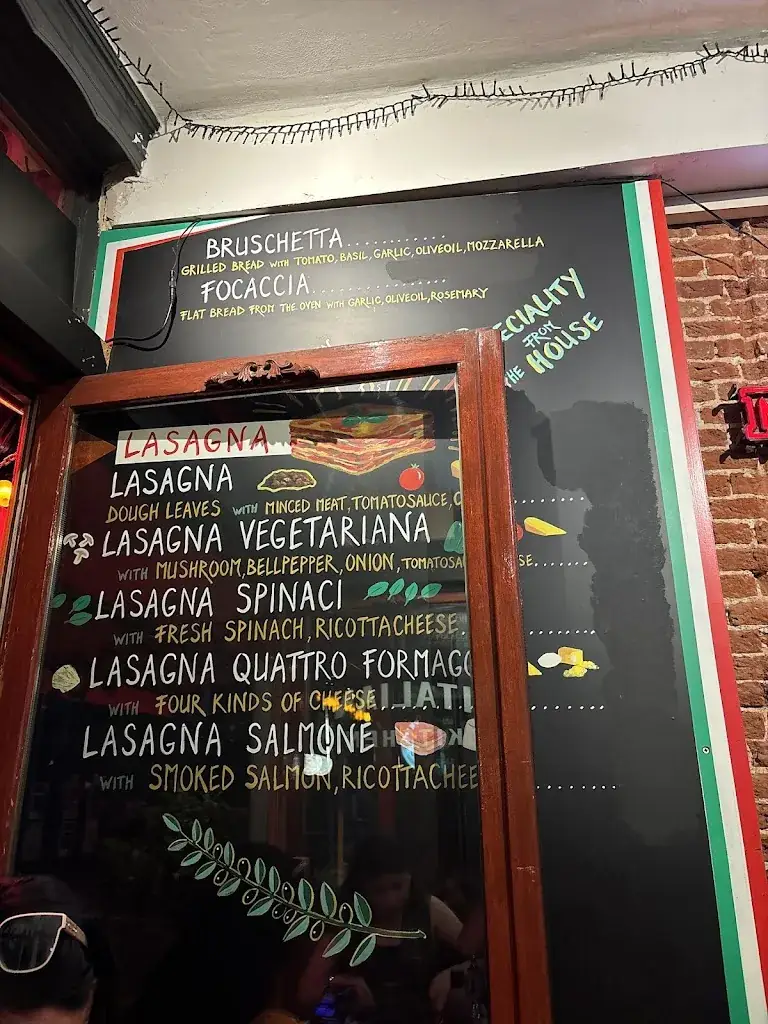 BRUSCHETTA..............
GRILLED BREAD WITH TOMATO, BASIL, GARLIC, OLIVEOIL, MOZZARELLA
FOCACCIA..................
FLAT BREAD FROM THE OVEN WITH GARLIC, OLIVEOIL, ROSEMARY
ECIALITY
FROM
THE HOUSE
LASAGNA
LASAGNA
DOUGH LEAVES WITH MINCED MEAT, TOMATOSAUCE, C
LASAGNA VEGETARIANA
WITH MUSHROOM, BELLPEPPER, ONION, TOMATOSA SE.......
LASAGNA SPINACI
WITH FRESH SPINACH, RICOTTACHEESE.
LASAGNA QUATTRO FORMAGG
WITH FOUR KINDS OF CHEESE.
LASAGNA SALMONE
WITH SMOKED SALMON, RICOTTACHEE